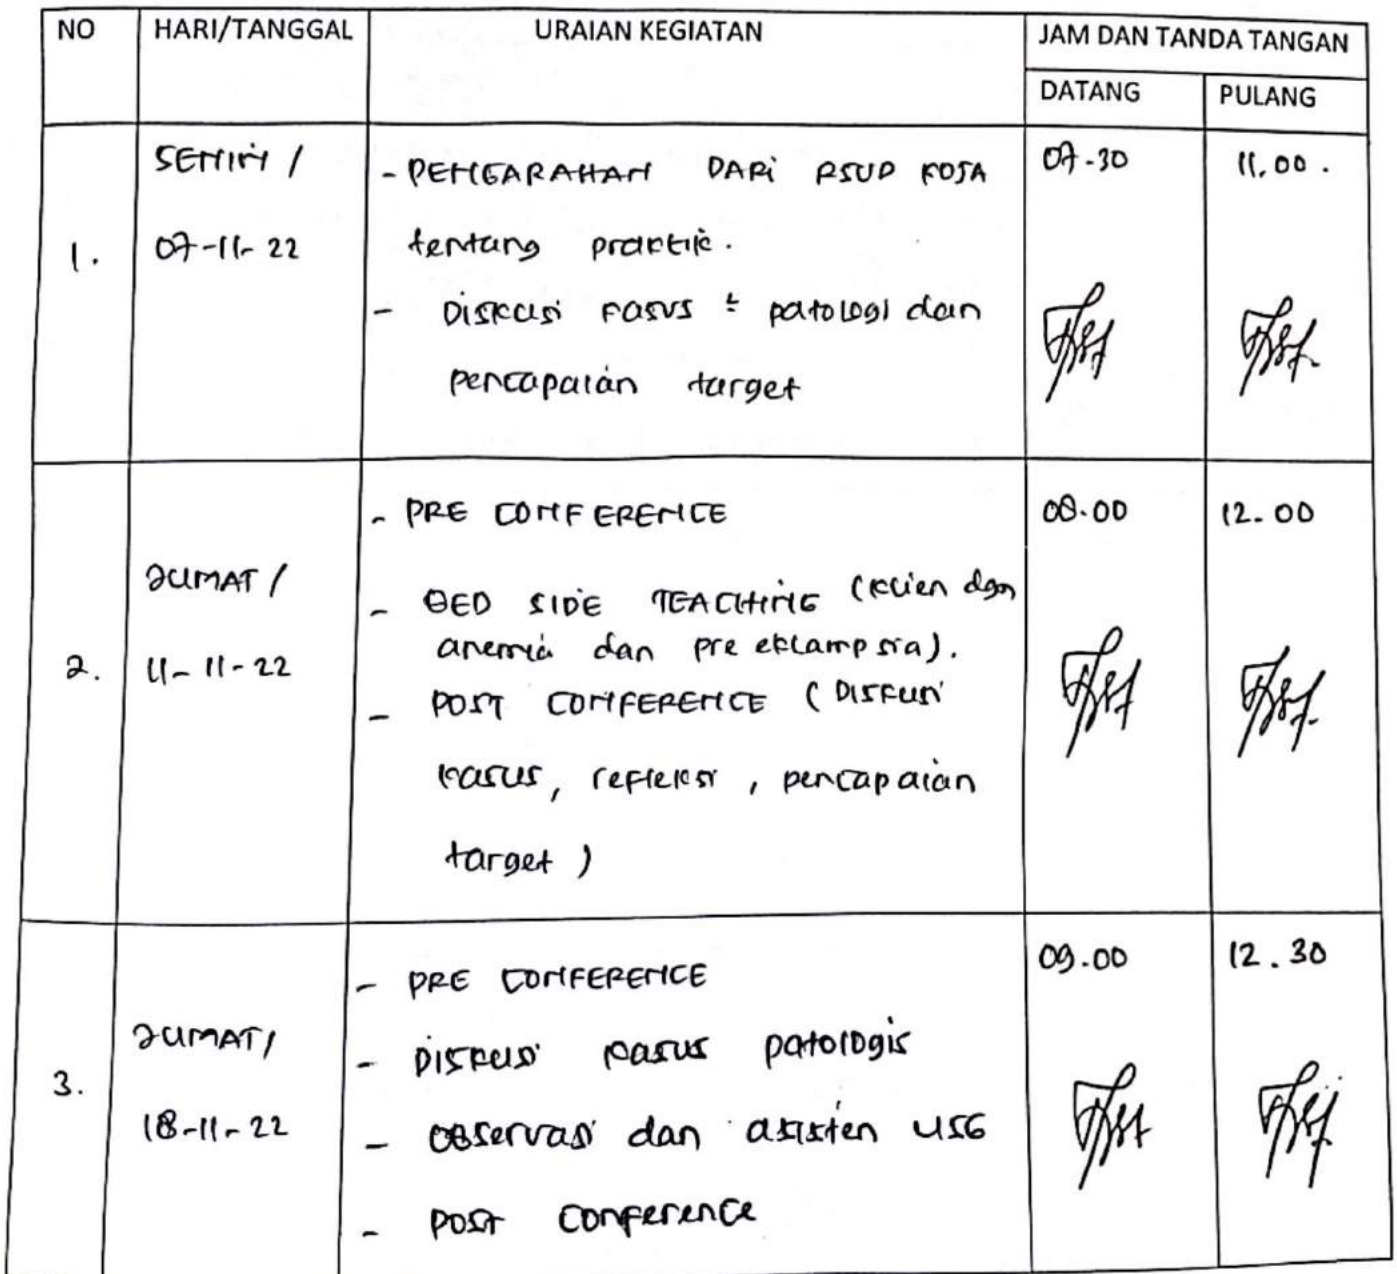 NO HARI/TANGGAL URAIAN KEGIATAN JAM DAN TANDA TANGAN
DATANG PULANG
1. SENIN / 07-11-22
- PENGARAHAN DARI RSUD KOJA
tentang praktik.
- Diskusi kasus patologi dan
pencapaian target
07.30 11.00.
2. JUMAT / 11-11-22
- PRE CONFERENCE
- BED SIDE TEACHING (klien dgn
anemia dan pre eklampsia).
- POST CONFERENCE (DISKUSI
kasus, refleksi, pencapaian
target)
08.00 12.00
3. JUMAT/ 18-11-22
- PRE CONFERENCE
- DISKUSI kasus patologis
- OBservasi dan asisten USG
- POST Conference
09.00 12.30